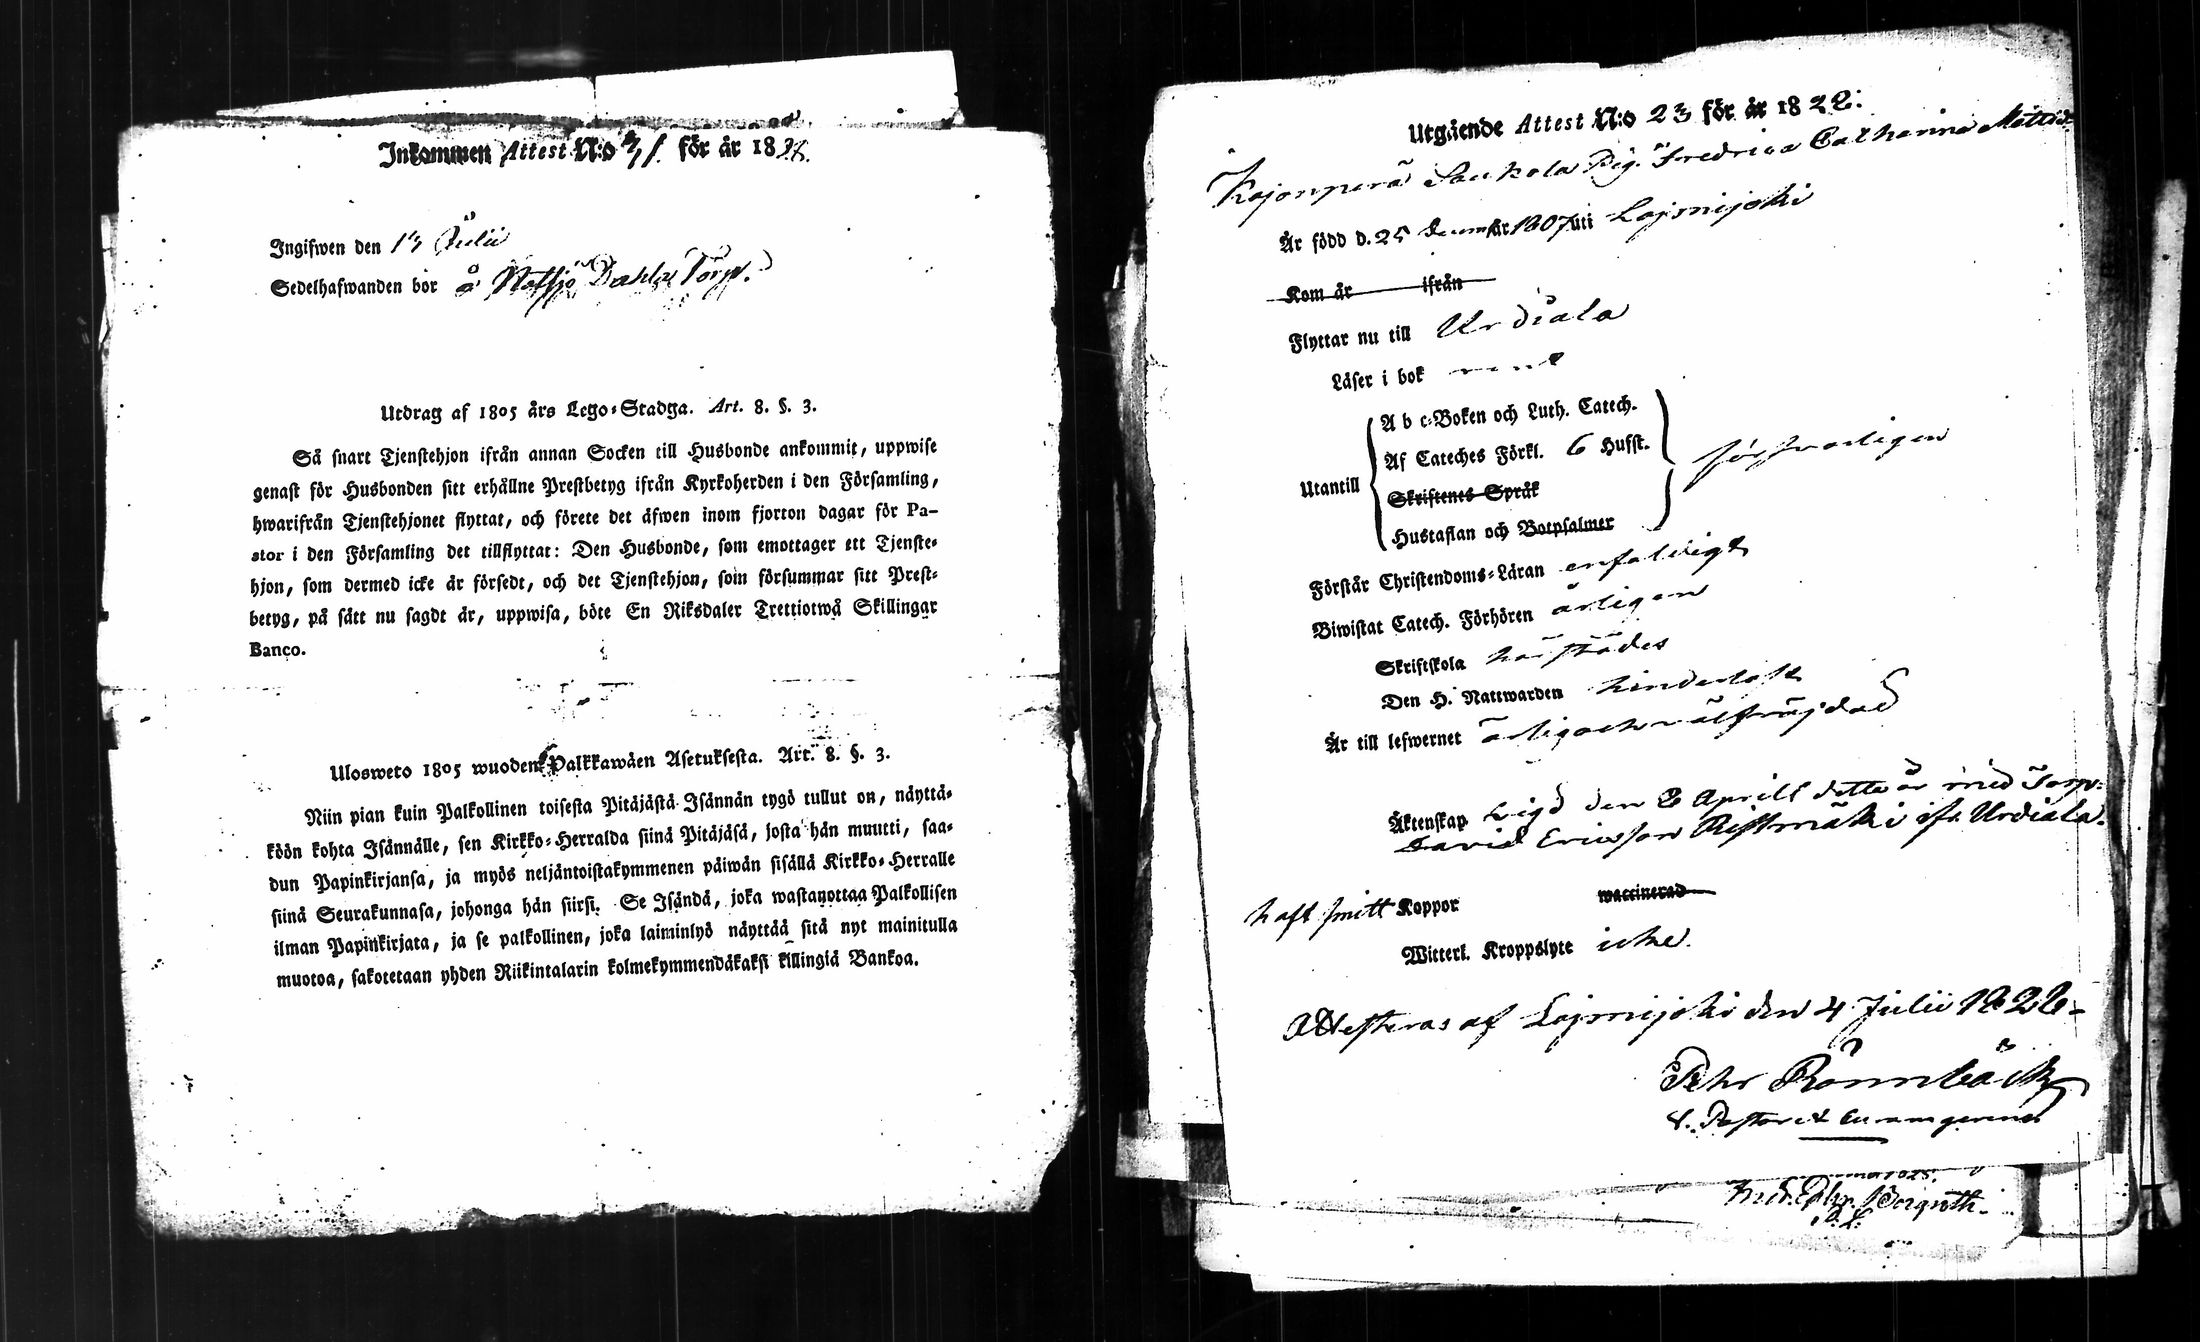 Inkommen Attest N:o för år 18
Ingifwen den 13 Julii
Sedelhafwanden bor å Torp.
Utdrag af 1805 års Lego-Stadga. Art. 8. §. 3.
Så snart Tjenstehjon ifrån annan Socken till Husbonde ankommit, uppwise
genast för Husbonden sitt erhållne Prestbetyg ifrån Kyrkoherden i den Församling,
hwarifrån Tjenstehjonet flyttat, och förete det äfwen inom fjorton dagar för Pa-
stor i den Församling det tillflyttat: Den Husbonde, som emottager ett Tjenste-
hjon, som dermed icke är försedt, och det Tjenstehjon, som försummar sitt Prest-
betyg, på sätt nu sagdt är, uppwisa, böte En Riksdaler Trettiotwå Skillingar
Banco.
Ulosweto 1805 wuoden Palkkawäen Asetuksesta. Art. 8. §. 3.
Niin pian kuin Palkollinen toisesta Pitäjästä Isännän tygö tullut on, näyttä-
köön kohta Isännälle, sen Kirkko-Herralda siinä Pitäjäsä, josta hän muutti, saa-
dun Papinkirjansa, ja myös neljäntoistakymmenen päiwän sisällä Kirkko-Herralle
siinä Seurakunnasa, johonga hän siirsi. Se Isändä, joka wastanottaa Palkollisen
ilman Papinkirjata, ja se palkollinen, joka laiminlyö näyttää sitä nyt mainitulla
muotoa, sakotetaan yhden Riikintalarin kolmekymmendäkaksi killingiä Bankoa.
Utgående Attest N:o 23 för år 1828.
Kojonperä Saukola Pig. Fredrica Catharina Mattsd:
Är född d. 25 Decemb år 1807 uti Lojmijoki
Kom år ifrån
Flyttar nu till Urdiala
Läser i bok rent
A b c-Boken och Luth. Catech.
Af Cateches Förkl. 6 Hufst.
Utantill försvarligen
Skriftenes Språk
Hustaflan och Botpsalmer
Förstår Christendoms-Läran enfaldigt
Biwistat Catech. Förhören årligen
Skriftskola härstädes
Den H. Nattwarden hinderlöst
Är till lefwernet ärlig och välfräjdad
Äktenskap vigd den 6 Aprill detta år med Torp:
David Ericsson Ristimäki ifr. Urdiala.
haft smitt Koppor waccinerad
Witterl. Kroppslyte icke.
Attesteras af Lojmijoki den 4 Julii 1828
Pehr Rönnbäck
V. Pastor et Cur. in germ.
Bergroth.